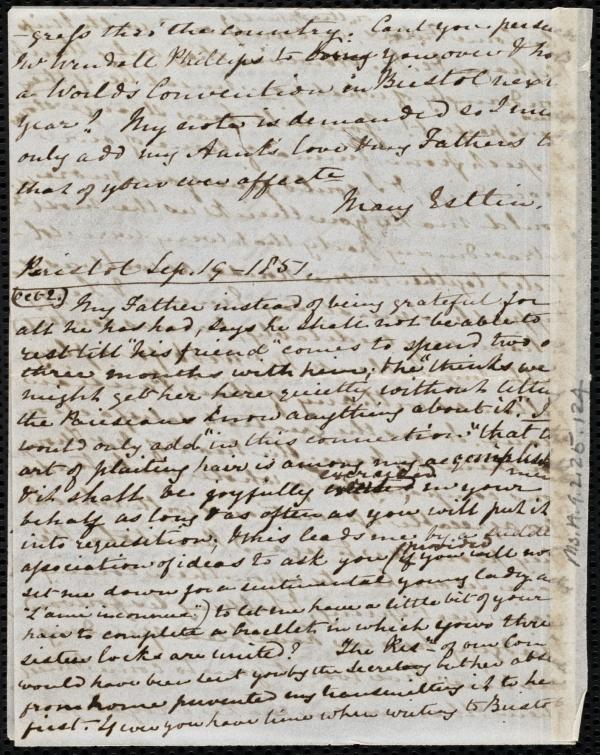 -gress thro' the country. Cant you persua
Mr Wendall Phillips to bring you over & ho
a World's Convention in Bristol next
year? My note is demanded so I mu
only add my Aunt's love & my Fathers to
that of your ever affecte
Mary Estlin.
Bristol Sep. 19 - 1851.
My Father instead of being grateful for
all he has had, says he shall not be able to
rest till "his friend" comes to spend two o
three months with him; & he "thinks we
might get her here quietly without letting
the Parisians know anything about it". I
would only add "in this connection" that th
art of plaiting hair is among my accomplish
& it shall be joyfully exercised in your
behalf as long & as often as you will put it
into requisition; & this leads me by a sudde
association of ideas to ask you (provided you will no
set me down for a sentimental young lady a
"L'amie inconnue") to let me have a little bit of your
hair to complete a bracelet in which your three
sister locks are united? The Resns of our Com
would have been sent you by the Secretary but her abse
from home prevented my transmitting it to her
first. If ever you have time when writing to Bristol
Ms.A.9.2.25.124